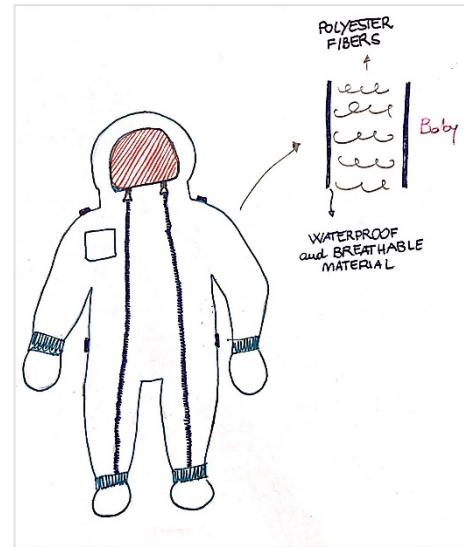 POLYESTER
FIBERS
Baby
WATERPROOF
and BREATHABLE
MATERIAL